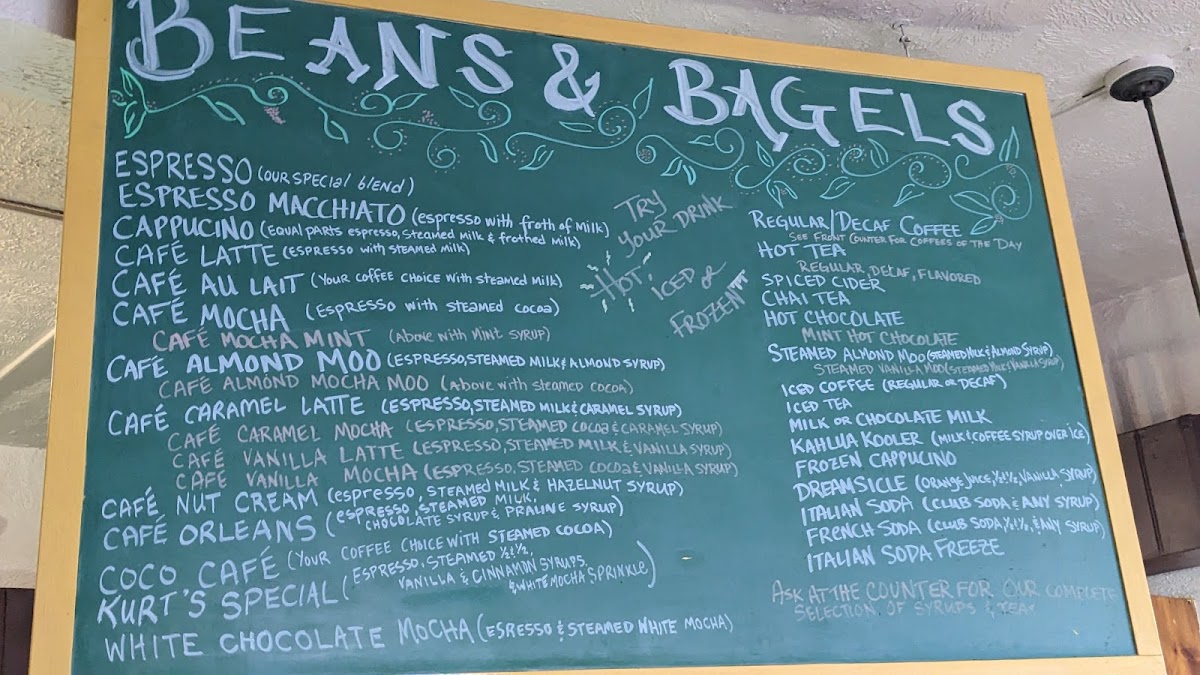 BEANS & BAGELS
ESPRESSO (OUR SPECIAL blend)
ESPRESSO MACCHIATO (espresso with froth of Milk)
CAPPUCINO (EQUAL PARTS espresso, Steamed milk & frothed milk)
CAFÉ LATTE (ESPRESSO with STEAMED MILK)
CAFÉ AU LAIT (YOUR COFFEE CHOICE with steamed milk)
CAFÉ MOCHA (ESPRESSO with STEAMED COCOA)
CAFÉ MOCHA MINT (Above with Mint SYRUP)
CAFÉ ALMOND MOO (ESPRESSO, STEAMED MILK & ALMOND SYRUP)
CAFÉ ALMOND MOCHA MOO (Above with steamed COCOA)
CAFÉ CARAMEL LATTE (ESPRESSO, STEAMED MILK & CARAMEL SYRUP)
CAFÉ CARAMEL MOCHA (ESPRESSO, STEAMED COCOA & CARAMEL SYRUP)
CAFÉ VANILLA LATTE (ESPRESSO, STEAMED MILK & VANILLA SYRUP)
CAFÉ VANILLA MOCHA (ESPRESSO, STEAMED COCOA & VANILLA SYRUP)
CAFÉ NUT CREAM (espresso, STEAMED MILK & HAZELNUT SYRUP)
CAFÉ ORLEANS (ESPRESSO, STEAMED MILK,
CHOCOLATE SYRUP & PRALINE SYRUP)
COCO CAFÉ (YOUR COFFEE CHOICE WITH STEAMED COCOA)
KURT'S SPECIAL (ESPRESSO, STEAMED ½&½,
VANILLA & CINNAMON SYRUPS,
& WHITE MOCHA SPRINKLE)
WHITE CHOCOLATE MOCHA (ESRESSO & STEAMED WHITE MOCHA)
TRY
YOUR DRINK
HOT,
ICED OR
FROZEN
REGULAR/DECAF COFFEE
SEE FRONT COUNTER FOR COFFEES OF THE DAY
HOT TEA
REGULAR, DECAF, FLAVORED
SPICED CIDER
CHAI TEA
HOT CHOCOLATE
MINT HOT CHOCOLATE
STEAMED ALMOND MOO (STEAMED MILK & ALMOND SYRUP)
STEAMED VANILLA MOO (STEAMED MILK & VANILLA SYRUP)
ICED COFFEE (REGULAR OR DECAF)
ICED TEA
MILK OR CHOCOLATE MILK
KAHLUA KOOLER (MILK & COFFEE SYRUP OVER ICE)
FROZEN CAPPUCINO
DREAMSICLE (ORANGE JUICE, ½&½, VANILLA SYRUP)
ITALIAN SODA (CLUB SODA & ANY SYRUP)
FRENCH SODA (CLUB SODA, ½&½, & ANY SYRUP)
ITALIAN SODA FREEZE
ASK AT THE COUNTER FOR OUR COMPLETE
SELECTION OF SYRUPS & TEAS